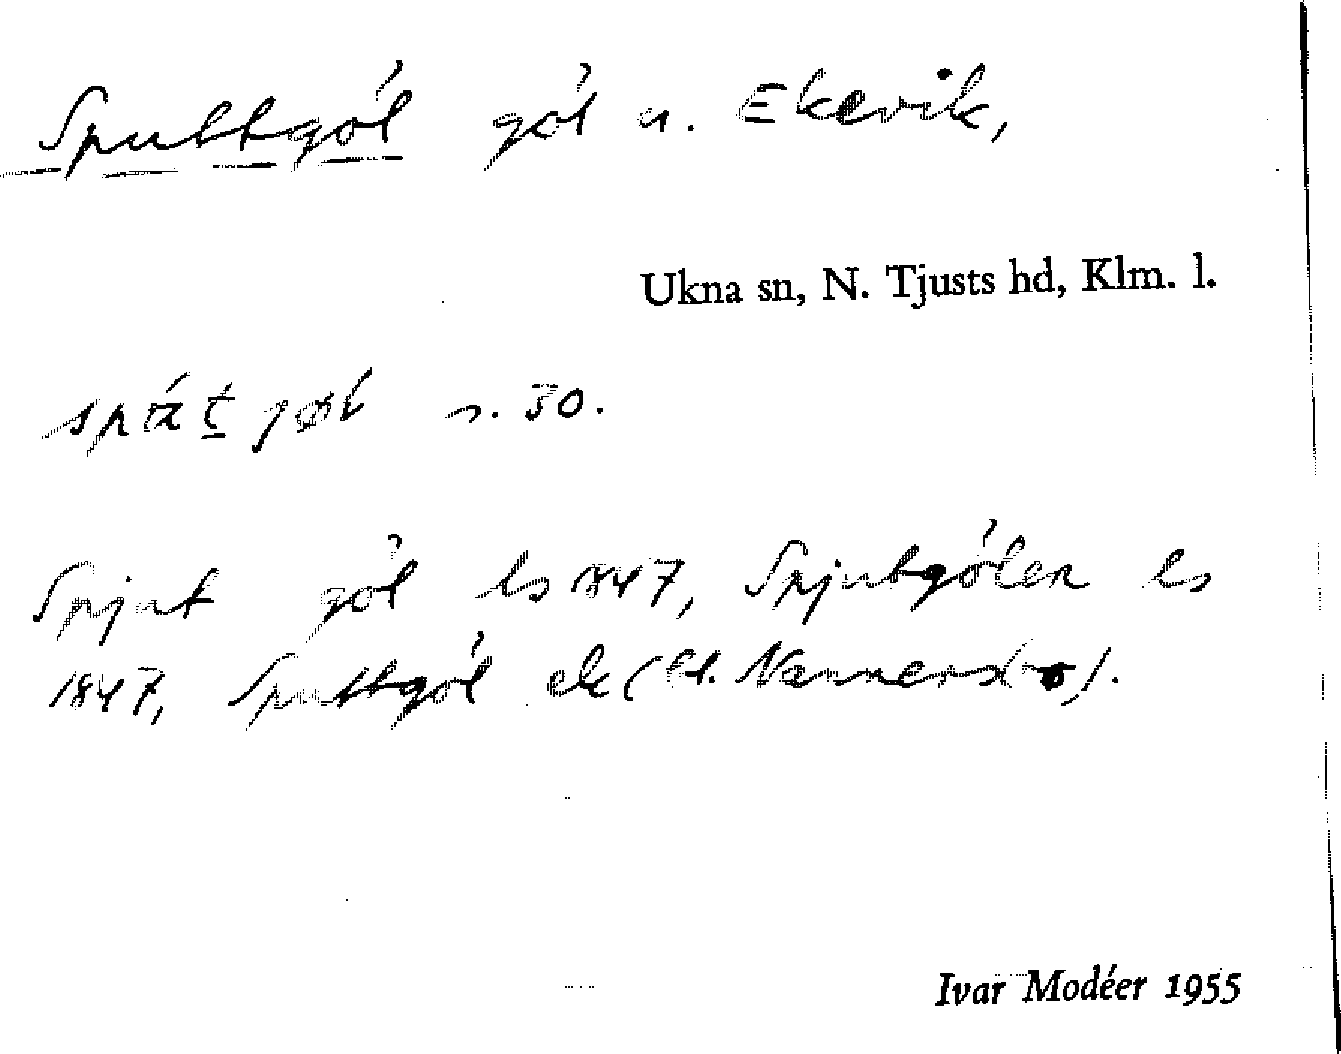 Sputtgöl göl u. Ekevik,
Ukna sn, N. Tjusts hd, Klm. l.
s. 30.
Spjut göl ls 1847, Spjutgölen ls
1847, Sputtgöl ek (St. Vammersbo).
Ivar Modéer 1955